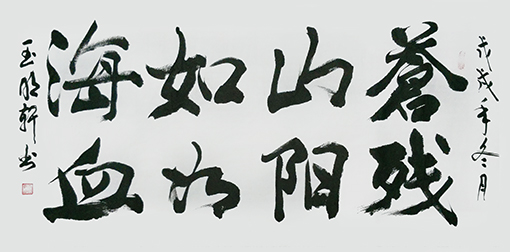 戊戌年冬月
蒼山如海
残阳如血
玉明轩书